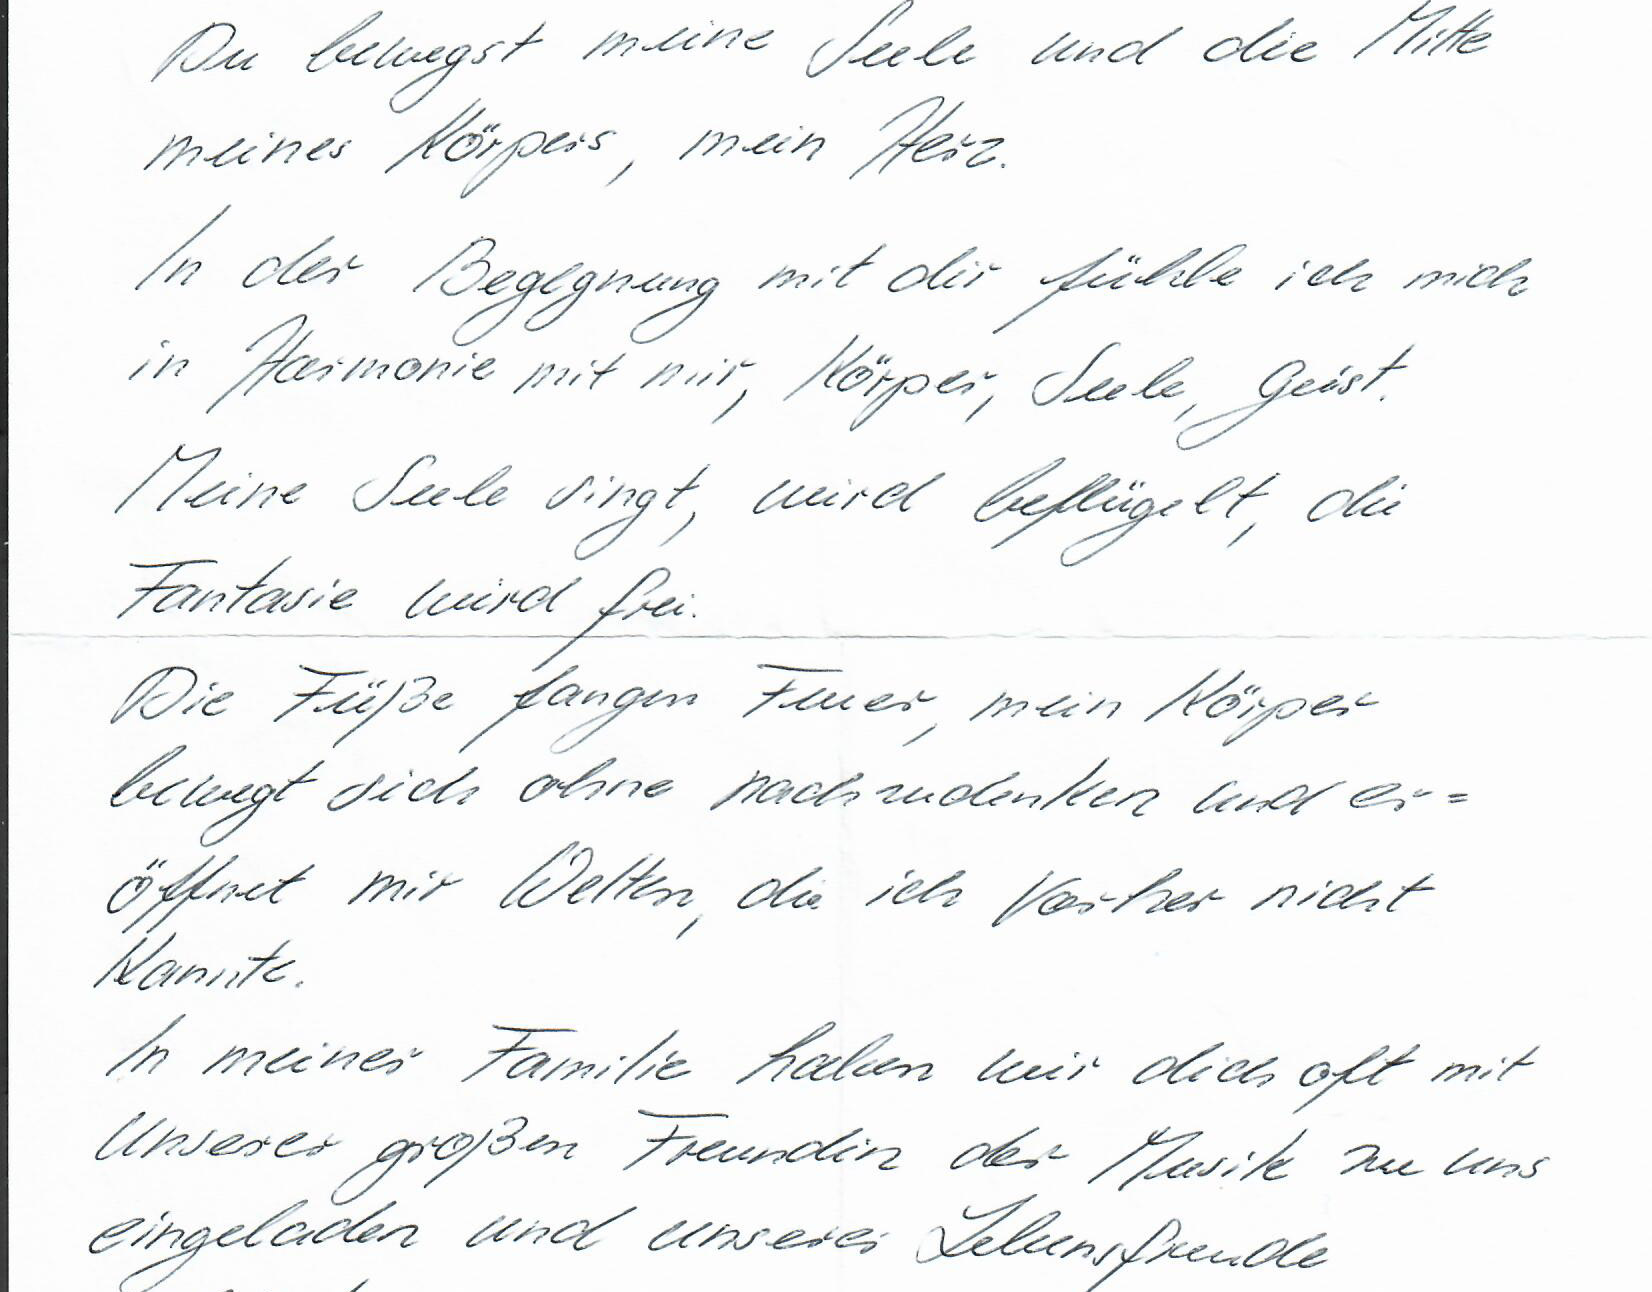 Du bewegst meine Seele und die Mitte
meines Körpers, mein Herz.
In der Begegnung mit dir fühle ich mich
in Harmonie mit mir, Körper, Seele, Geist.
Meine Seele singt, wird beflügelt, die
Fantasie wird frei.
Die Füße fangen Feuer, mein Körper
bewegt sich ohne nachzudenken und er=
öffnet mir Welten, die ich Vorher nicht
Kannte.
In meiner Familie haben wir dich oft mit
Unserer großen Freundin der Musik zu uns
eingeladen und unserer Lebensfreude